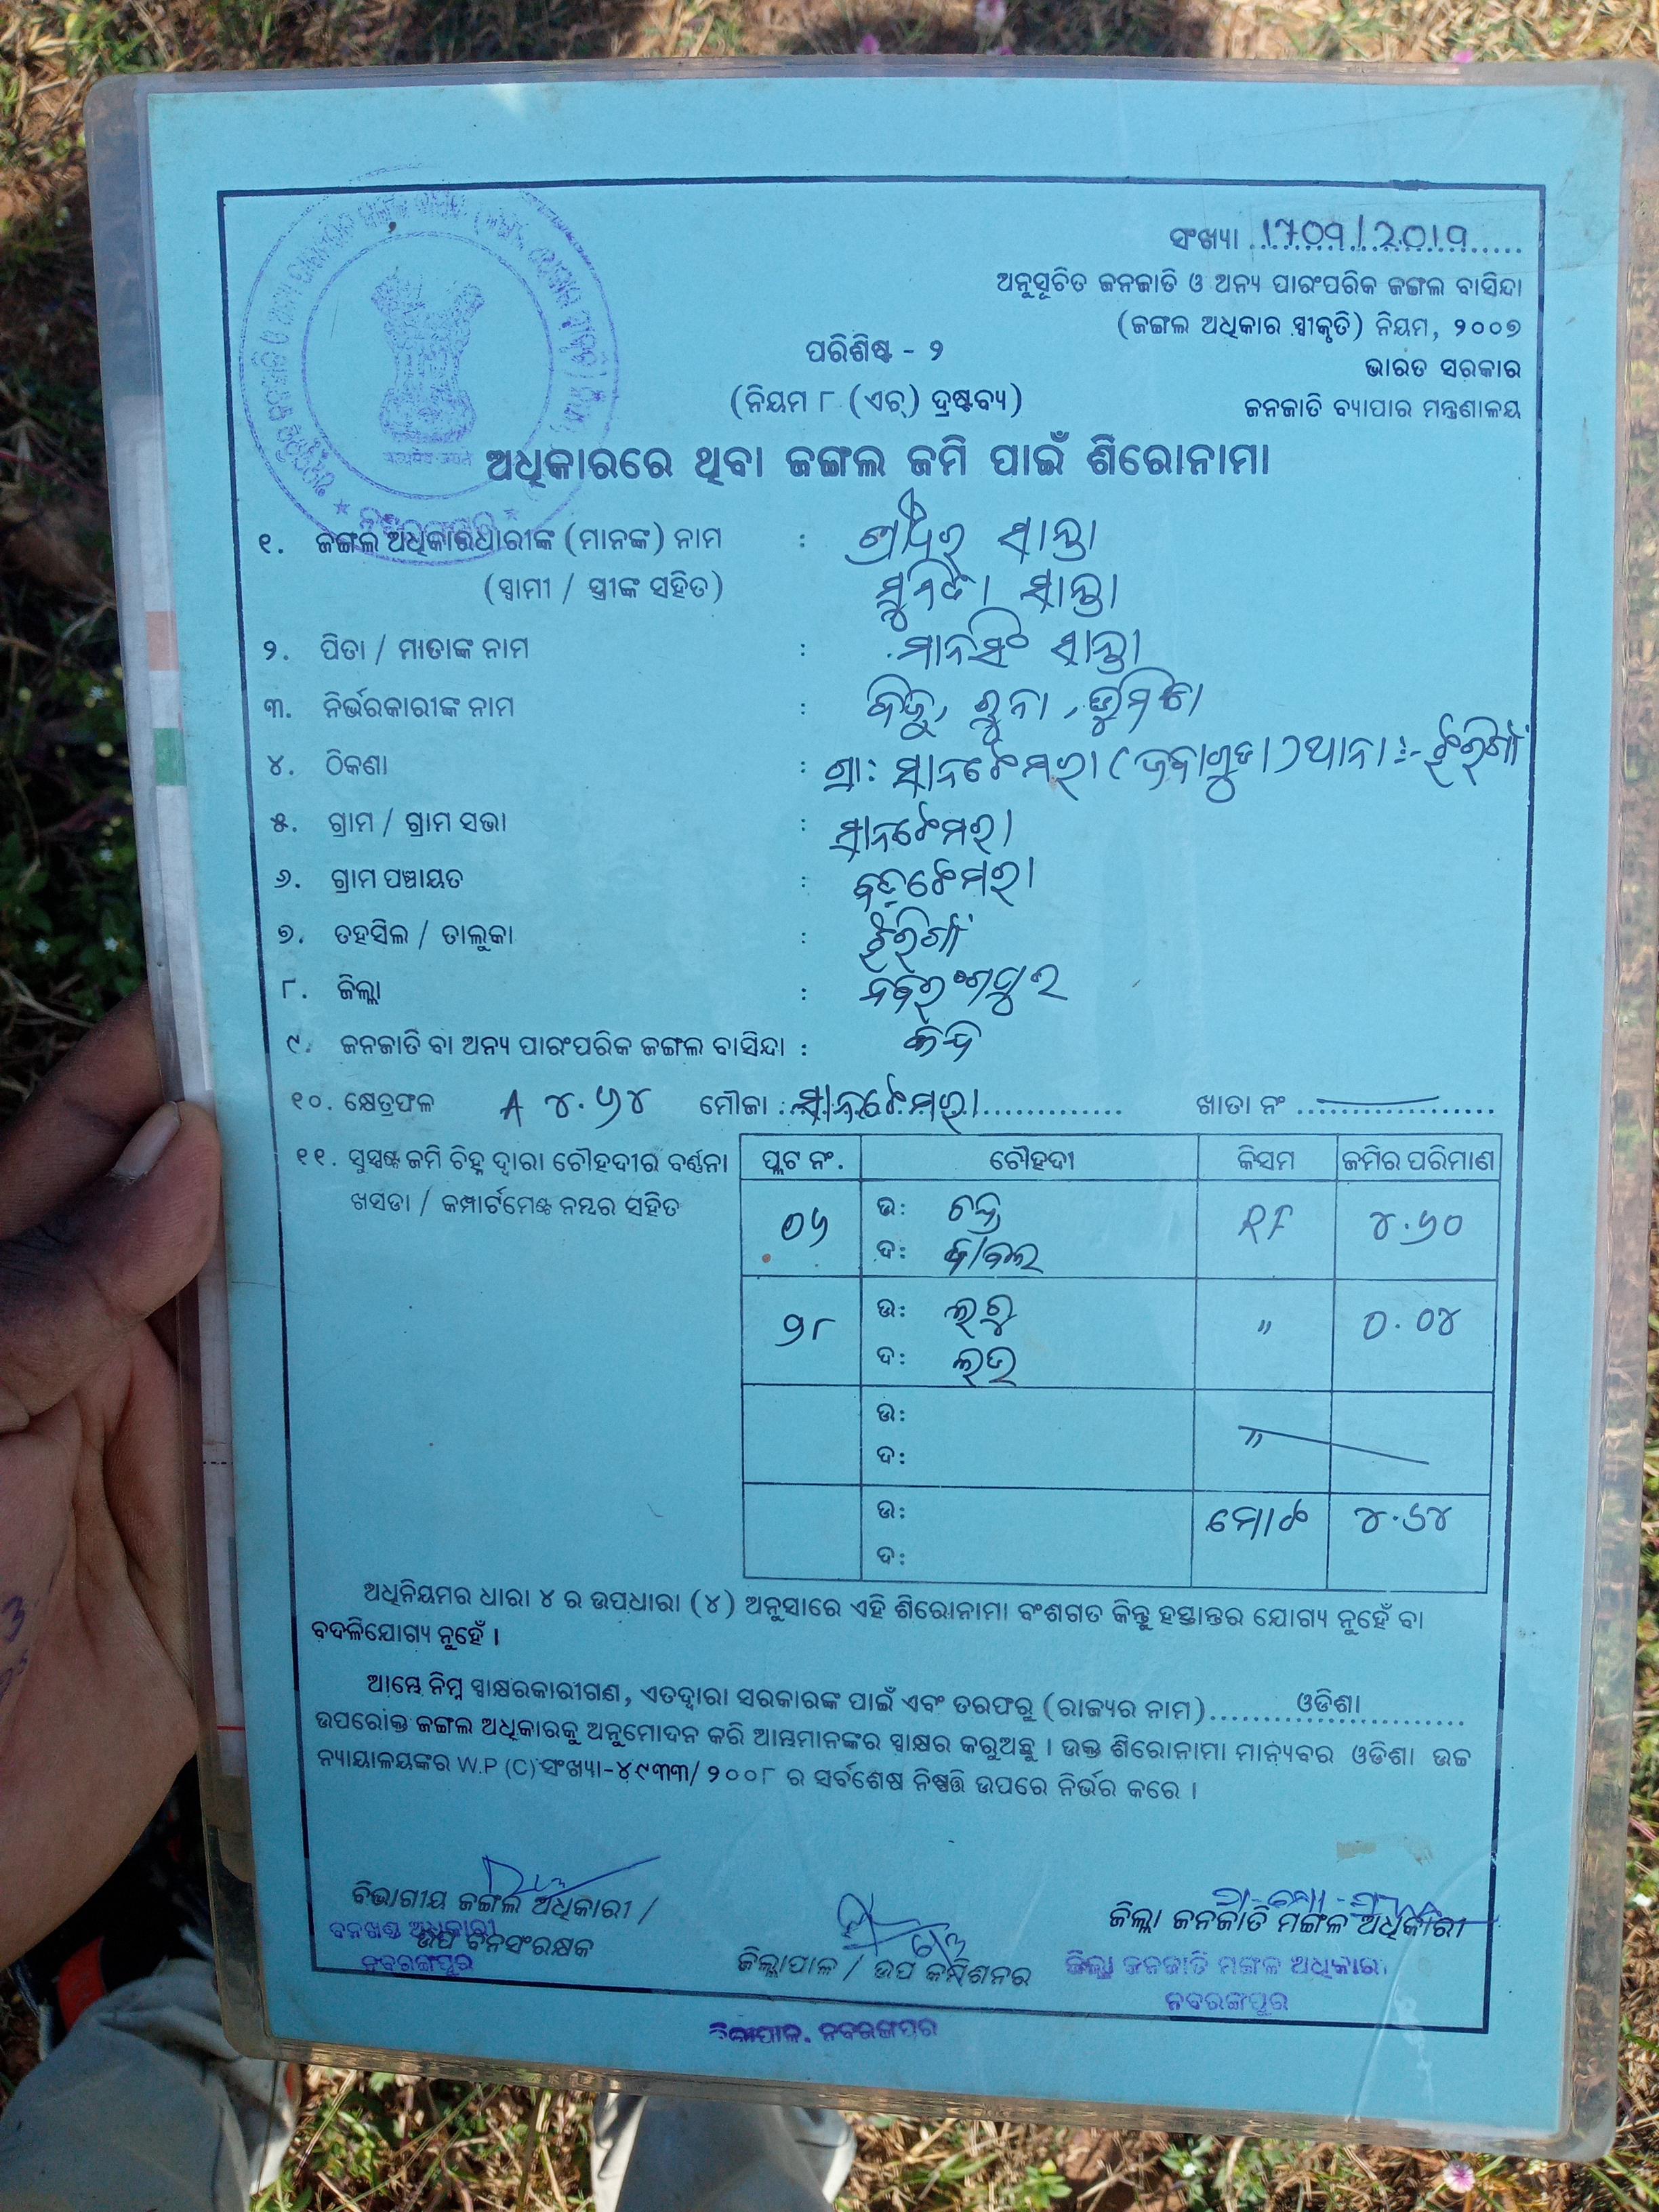 ସଂଖ୍ୟା ୧୨୦୨/୨୦୧୨
ଅନୁସୂଚିତ ଜନଜାତି ଓ ଅନ୍ୟ ପାରଂପରିକ ଜଙ୍ଗଲ ବାସିନ୍ଦା
(ଜଙ୍ଗଲ ଅଧିକାର ସ୍ୱୀକୃତି) ନିୟମ, ୨୦୦୭
ପରିଶିଷ୍ଟ - ୨
ଭାରତ ସରକାର
(ନିୟମ ୮ (ଏଚ୍) ଦ୍ରଷ୍ଟବ୍ୟ)
ଜନଜାତି ବ୍ୟାପାର ମନ୍ତ୍ରଣାଳୟ
ଅଧିକାରରେ ଥିବା ଜଙ୍ଗଲ ଜମି ପାଇଁ ଶିରୋନାମା
୧. ଜଙ୍ଗଲ ଅଧିକାରଧାରୀଙ୍କ (ମାନଙ୍କ) ନାମ : ଶ୍ରୀଧର ସାନ୍ତା
(ସ୍ୱାମୀ / ସ୍ତ୍ରୀଙ୍କ ସହିତ) ସାନ୍ତା
୨. ପିତା / ମାତାଙ୍କ ନାମ : ମାନସିଂ ସାନ୍ତା
୩. ନିର୍ଭରକାରୀଙ୍କ ନାମ :
୪. ଠିକଣା : ଗ୍ରା: ସାନଟେମରା ଥାନା :- ଝରିଗାଁ
୫. ଗ୍ରାମ / ଗ୍ରାମ ସଭା : ସାନଟେମରା
୬. ଗ୍ରାମ ପଞ୍ଚାୟତ : ବଡ଼ଟେମରା
୭. ତହସିଲ / ତାଲୁକା : ଝରିଗାଁ
୮. ଜିଲ୍ଲା : ନବରଂଗପୁର
୯. ଜନଜାତି ବା ଅନ୍ୟ ପାରଂପରିକ ଜଙ୍ଗଲ ବାସିନ୍ଦା :
୧୦. କ୍ଷେତ୍ରଫଳ A ୪.୬୪ ମୌଜା ସାନଟେମରା ଖାତା ନଂ
୧୧. ସୁସ୍ପଷ୍ଟ ଜମି ଚିହ୍ନ ଦ୍ୱାରା ଚୌହଦୀର ବର୍ଣ୍ଣନା
ଖସଡା / କମ୍ପାର୍ଟମେଣ୍ଟ ନମ୍ବର ସହିତ
ପ୍ଲଟ ନଂ. ଚୌହଦୀ କିସମ ଜମିର ପରିମାଣ
୦୬ ଉ: RF ୪.୬୦
ଦ:
୨୮ ଉ: " ୦.୦୪
ଦ:
ଉ: "
ଦ:
ଉ: ମୋଟ ୪.୬୪
ଦ:
ଅଧିନିୟମର ଧାରା ୪ ର ଉପଧାରା (୪) ଅନୁସାରେ ଏହି ଶିରୋନାମା ବଂଶଗତ କିନ୍ତୁ ହସ୍ତାନ୍ତର ଯୋଗ୍ୟ ନୁହେଁ ବା
ବଦଳିଯୋଗ୍ୟ ନୁହେଁ ।
ଆମ୍ଭେ ନିମ୍ନ ସ୍ୱାକ୍ଷରକାରୀଗଣ, ଏତଦ୍ୱାରା ସରକାରଙ୍କ ପାଇଁ ଏବଂ ତରଫରୁ (ରାଜ୍ୟର ନାମ) ଓଡିଶା
ଉପରୋକ୍ତ ଜଙ୍ଗଲ ଅଧିକାରକୁ ଅନୁମୋଦନ କରି ଆମ୍ଭମାନଙ୍କର ସ୍ୱାକ୍ଷର କରୁଅଛୁ । ଉକ୍ତ ଶିରୋନାମା ମାନ୍ୟବର ଓଡିଶା ଉଚ୍ଚ
ନ୍ୟାୟାଳୟଙ୍କର W.P (C) ସଂଖ୍ୟା-୪୯୩୩/୨୦୦୮ ର ସର୍ବଶେଷ ନିଷ୍ପତ୍ତି ଉପରେ ନିର୍ଭର କରେ ।
ବିଭାଗୀୟ ଜଙ୍ଗଲ ଅଧିକାରୀ /
ଉପ ବନସଂରକ୍ଷକ
ବନଖଣ୍ଡ ଅଧିକାରୀ
ନବରଙ୍ଗପୁର
ଜିଲ୍ଲାପାଳ / ଉପ କମିଶନର
ଜିଲ୍ଲାପାଳ, ନବରଙ୍ଗପୁର
ଜିଲ୍ଲା ଜନଜାତି ମଙ୍ଗଳ ଅଧିକାରୀ
ଜିଲ୍ଲା ଜନଜାତି ମଙ୍ଗଳ ଅଧିକାରୀ
ନବରଙ୍ଗପୁର